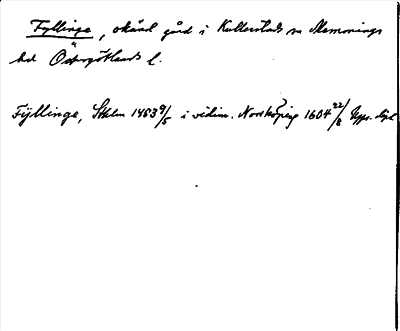 Fyllinge, okänd gård i Kullerstads sn Memmings
hd Östergötlands l.
Fyllinge, Sthlm 1483 9/5 i vidim. Norrköping 1604 22/8 Upps. dipl